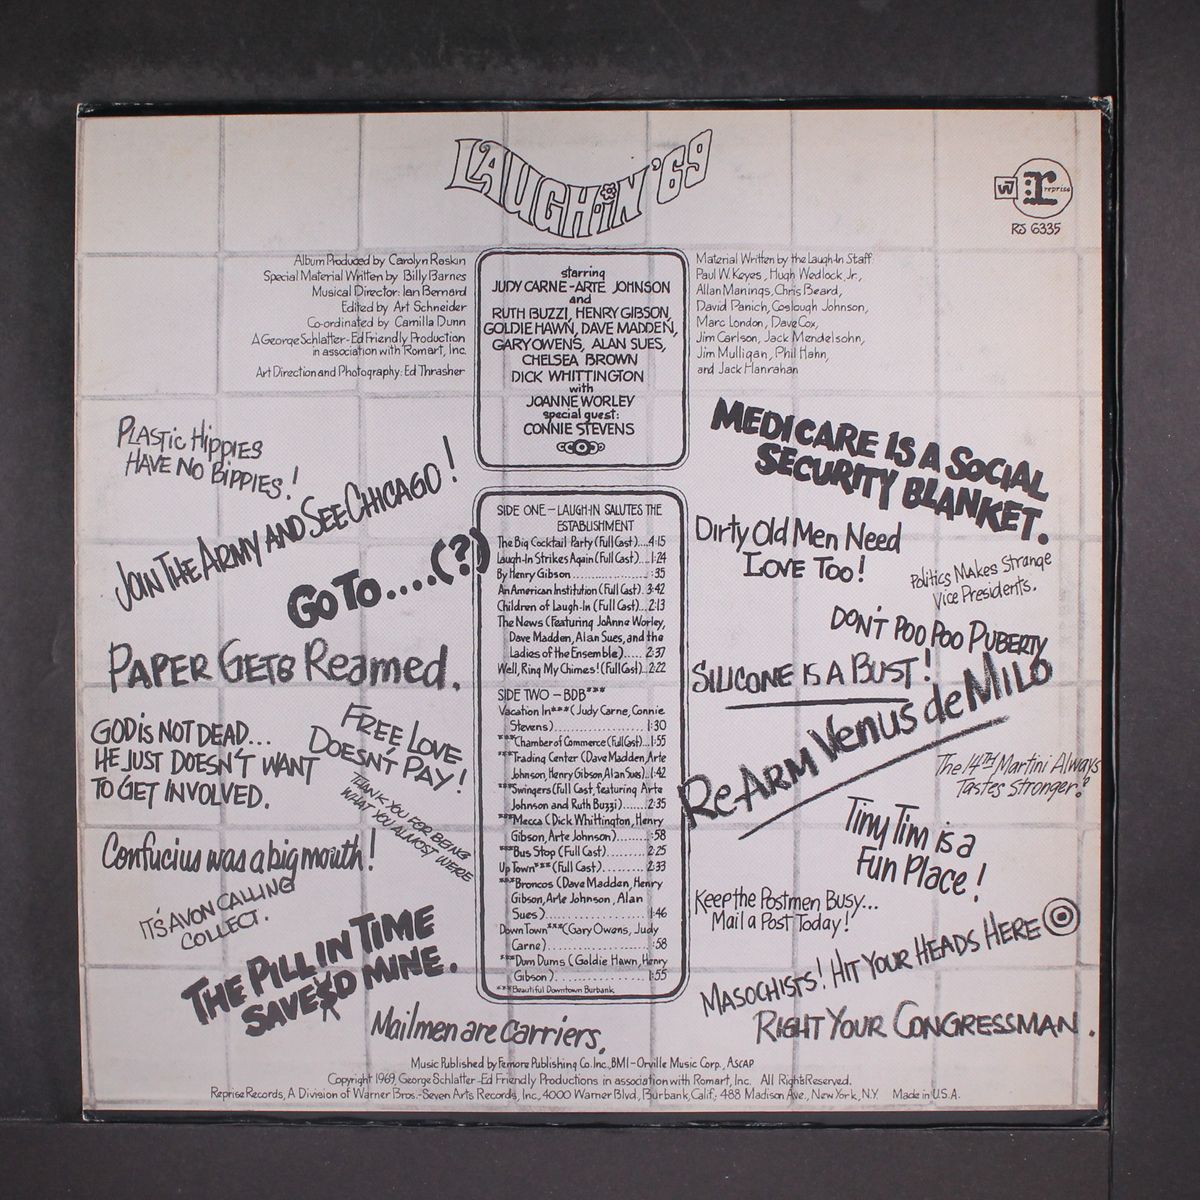 LAUGH-iN '69
W
r
reprise
RS 6335
Album Produced by Carolyn Raskin
Special Material Written by Billy Barnes
Musical Director: Ian Bernard
Edited by Art Schneider
Co-ordinated by Camilla Dunn
A George Schlatter-Ed Friendly Production
in association with Romart, Inc.
Art Direction and Photography: Ed Thrasher
starring
JUDY CARNE-ARTE JOHNSON
and
RUTH BUZZI, HENRY GIBSON,
GOLDIE HAWN, DAVE MADDEN,
GARY OWENS, ALAN SUES,
CHELSEA BROWN
DICK WHITTINGTON
with
JOANNE WORLEY
special guest:
CONNIE STEVENS
Material Written by the Laugh-In Staff:
Paul W. Keyes, Hugh Wedlock, Jr.,
Allan Manings, Chris Beard,
David Panich, Coslough Johnson,
Marc London, Dave Cox,
Jim Carlson, Jack Mendelsohn,
Jim Mulligan, Phil Hahn,
and Jack Hanrahan
PLASTIC HIPPIES
HAVE NO BIPPIES!
JOIN THE ARMY AND SEE CHICAGO!
GO TO....(?)
PAPER GETS REAMED.
GOD IS NOT DEAD...
HE JUST DOESN'T WANT
TO GET INVOLVED.
FREE LOVE
DOESN'T PAY!
THANK YOU FOR BEING
WHAT YOU ALMOST WERE
Confucius was a big mouth!
IT'S AVON CALLING
COLLECT.
THE PILL IN TIME
SAVEXD MINE.
Mailmen are carriers.
SIDE ONE – LAUGH-IN SALUTES THE
ESTABLISHMENT
The Big Cocktail Party (Full Cast)....4:15
Laugh-In Strikes Again (Full Cast)...1:24
By Henry Gibson.................:35
An American Institution (Full Cast). 3:42
Children of Laugh-In (Full Cast)...2:13
The News (Featuring JoAnne Worley,
Dave Madden, Alan Sues, and the
Ladies of the Ensemble)..... 2:37
Well, Ring My Chimes! (Full Cast)..2:22
SIDE TWO – BDB***
Vacation In*** (Judy Carne, Connie
Stevens)...................1:30
***Chamber of Commerce (Full Cast)...1:55
***Trading Center (Dave Madden, Arte
Johnson, Henry Gibson, Alan Sues)..1:42
***Swingers (Full Cast, featuring Arte
Johnson and Ruth Buzzi)......2:35
***Mecca (Dick Whittington, Henry
Gibson, Arte Johnson)........:58
***Bus Stop (Full Cast)..........2:25
Up Town*** (Full Cast).........2:33
***Broncos (Dave Madden, Henry
Gibson, Arte Johnson, Alan
Sues)....................1:46
Down Town*** (Gary Owens, Judy
Carne)....................:58
***Dum Dums (Goldie Hawn, Henry
Gibson)..................1:55
***Beautiful Downtown Burbank
MEDICARE IS A SOCIAL
SECURITY BLANKET.
Dirty Old Men Need
LOVE TOO!
Politics Makes Strange
Vice Presidents.
DON'T POO POO PUBERTY
SILICONE IS A BUST!
RE-ARM VENUS de MILO
The 14TH Martini Always
Tastes Stronger?
Tiny Tim is a
Fun Place!
Keep the Postmen Busy...
Mail a Post Today!
MASOCHISTS! HIT YOUR HEADS HERE
RIGHT YOUR CONGRESSMAN.
Music Published by Femore Publishing Co. Inc., BMI – Orville Music Corp., ASCAP
Copyright 1969, George Schlatter-Ed Friendly Productions in association with Romart, Inc. All Rights Reserved.
Reprise Records, A Division of Warner Bros.-Seven Arts Records, Inc., 4000 Warner Blvd., Burbank, Calif.; 488 Madison Ave., New York, N.Y. Made in U.S.A.